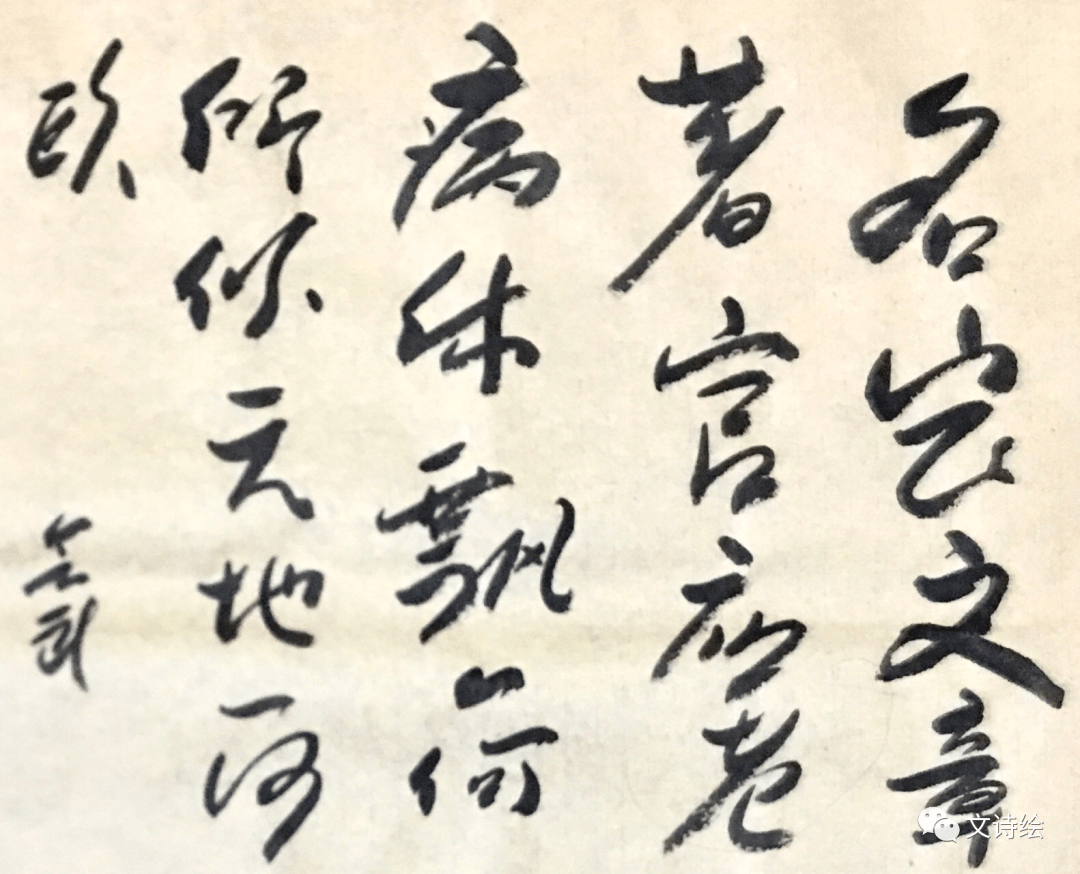 名岂文章
著官应老
病休飘々何
所似天地一沙
鸥
文诗绘